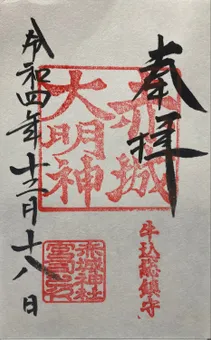 奉拝
赤城
大明神
牛込総鎮守
令和四年十二月十八日
赤城神社